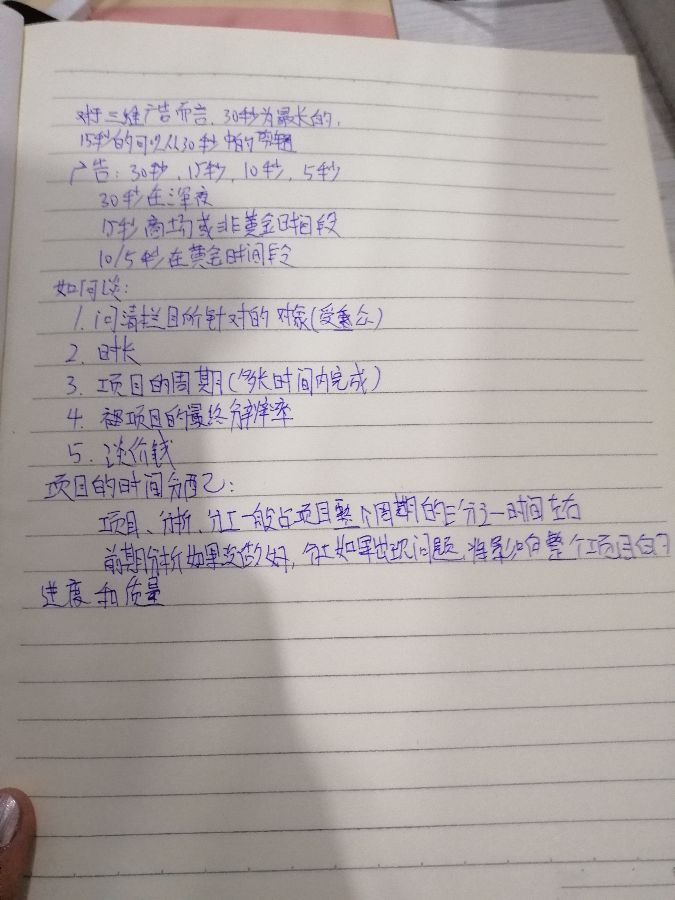 对于三维广告而言，30秒为最长的，
15秒的可以从30秒中的剪辑
广告：30秒、15秒、10秒、5秒
30秒在深夜
15秒商场或非黄金时间段
10/5秒在黄金时间段
如何谈：
1. 问清栏目所针对的对象(受众)
2. 时长
3. 项目的周期(多长时间内完成)
4. 项目的最终分辨率
5. 谈价钱
项目的时间分配：
项目、分析、分工一般占项目整个周期的三分之一时间左右
前期分析如果没做好，分工如果出现问题，将影响整个项目的
进度和质量